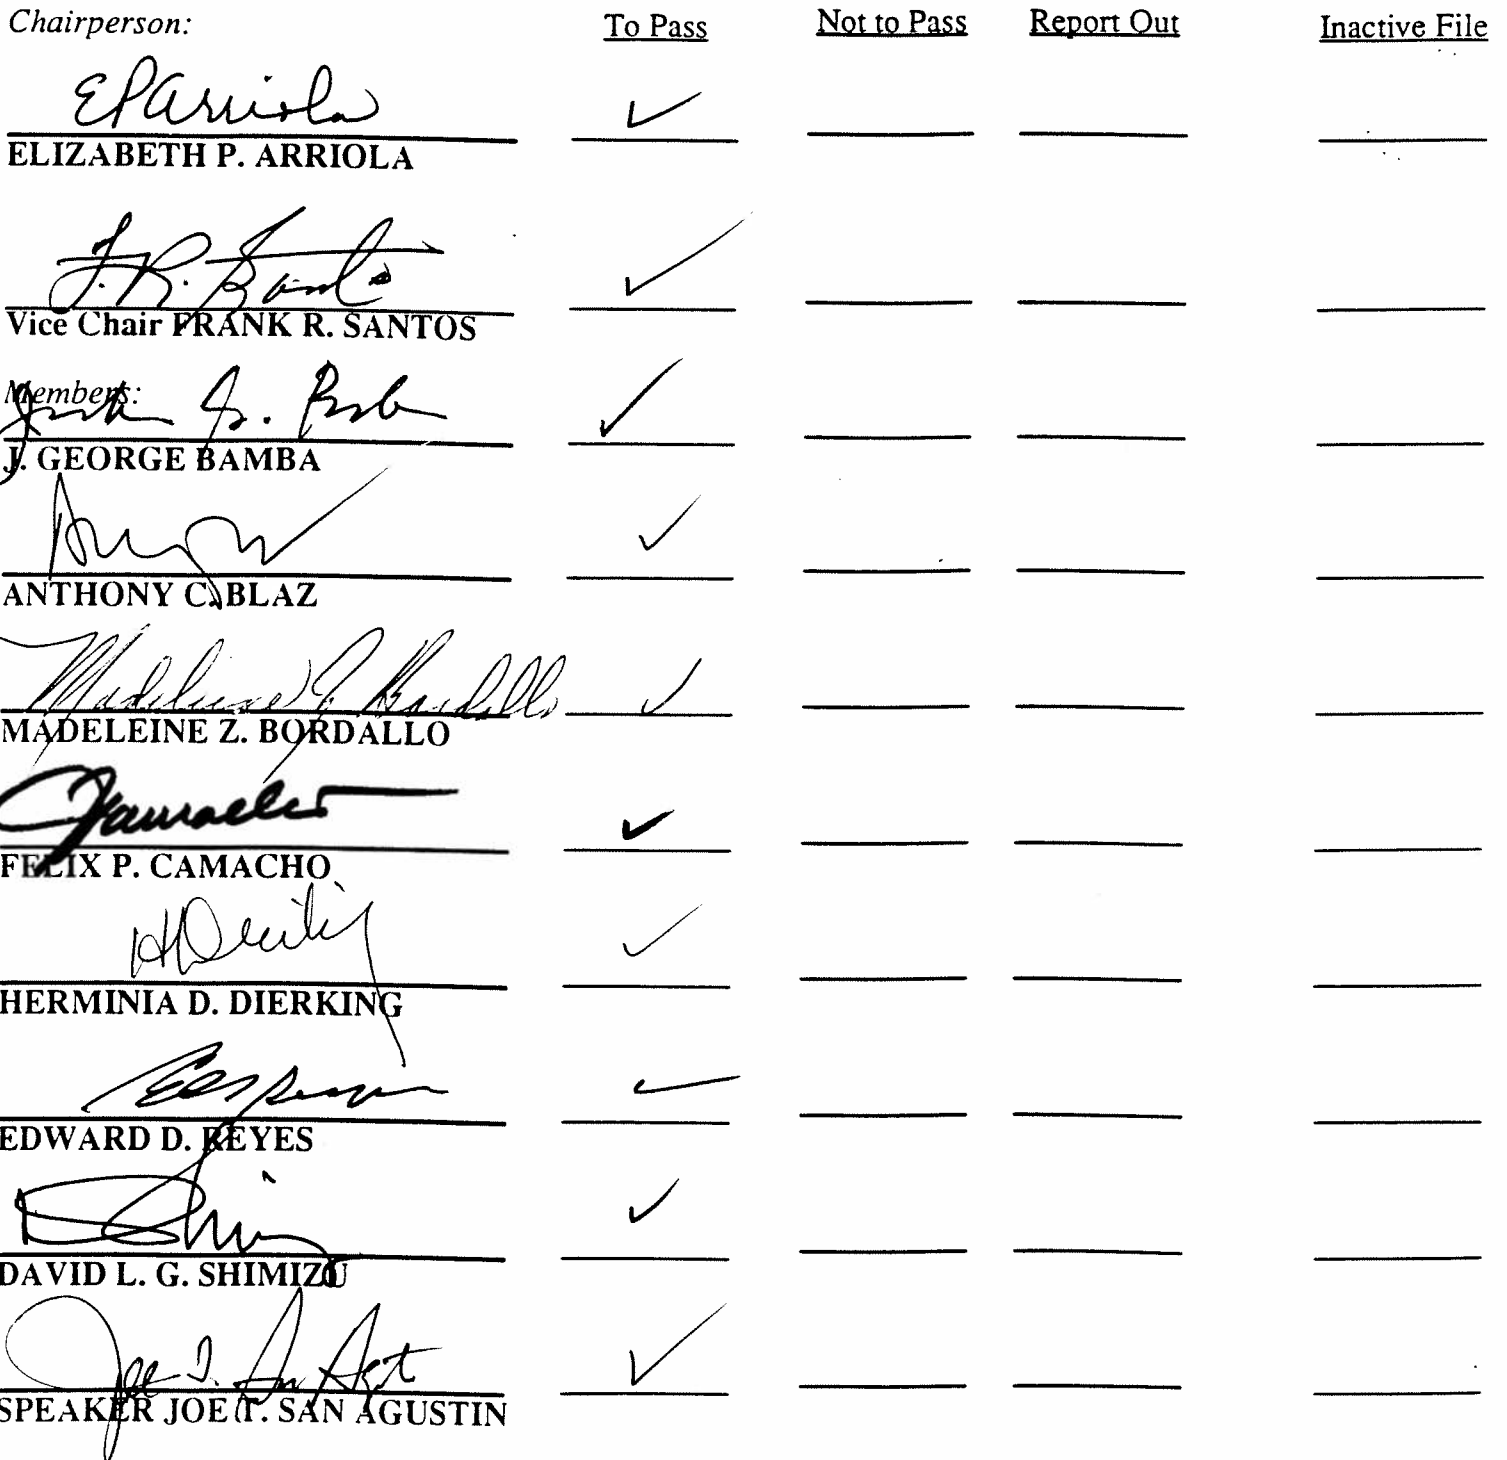 Chairperson: To Pass Not to Pass Report Out Inactive File
EPArriola ✓
ELIZABETH P. ARRIOLA
F. R. Santos ✓
Vice Chair FRANK R. SANTOS
Members:
✓
J. GEORGE BAMBA
✓
ANTHONY C. BLAZ
Madeleine Z Bordallo ✓
MADELEINE Z. BORDALLO
Camacho ✓
FELIX P. CAMACHO
✓
HERMINIA D. DIERKING
✓
EDWARD D. REYES
✓
DAVID L. G. SHIMIZU
Joe T. San Agust ✓
SPEAKER JOE T. SAN AGUSTIN